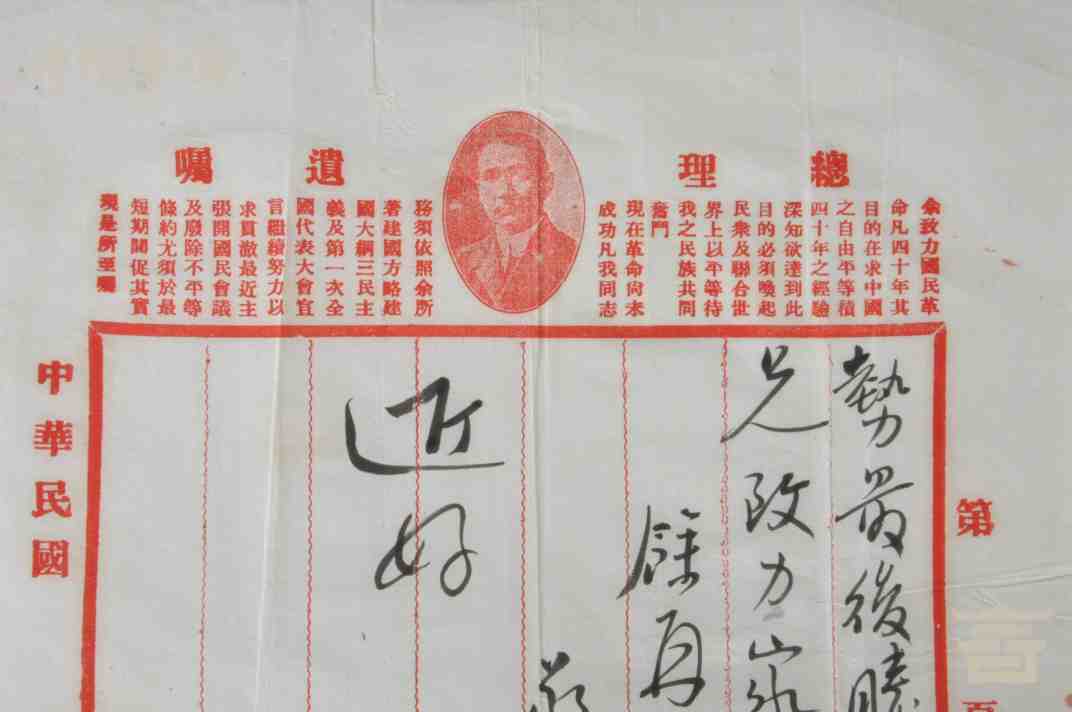 總理遺囑
余致力國民革
命凡四十年其
目的在求中國
之自由平等積
四十年之經驗
深知欲達到此
目的必須喚起
民衆及聯合世
界上以平等待
我之民族共同
奮鬥
現在革命尚未
成功凡我同志
務須依照余所
著建國方略建
國大綱三民主
義及第一次全
國代表大會宣
言繼續努力以
求貫澈最近主
張開國民會議
及廢除不平等
條約尤須於最
短期間促其實
現是所至囑
第頁
勢最後勝
兄改力
餘再
近好
中華民國